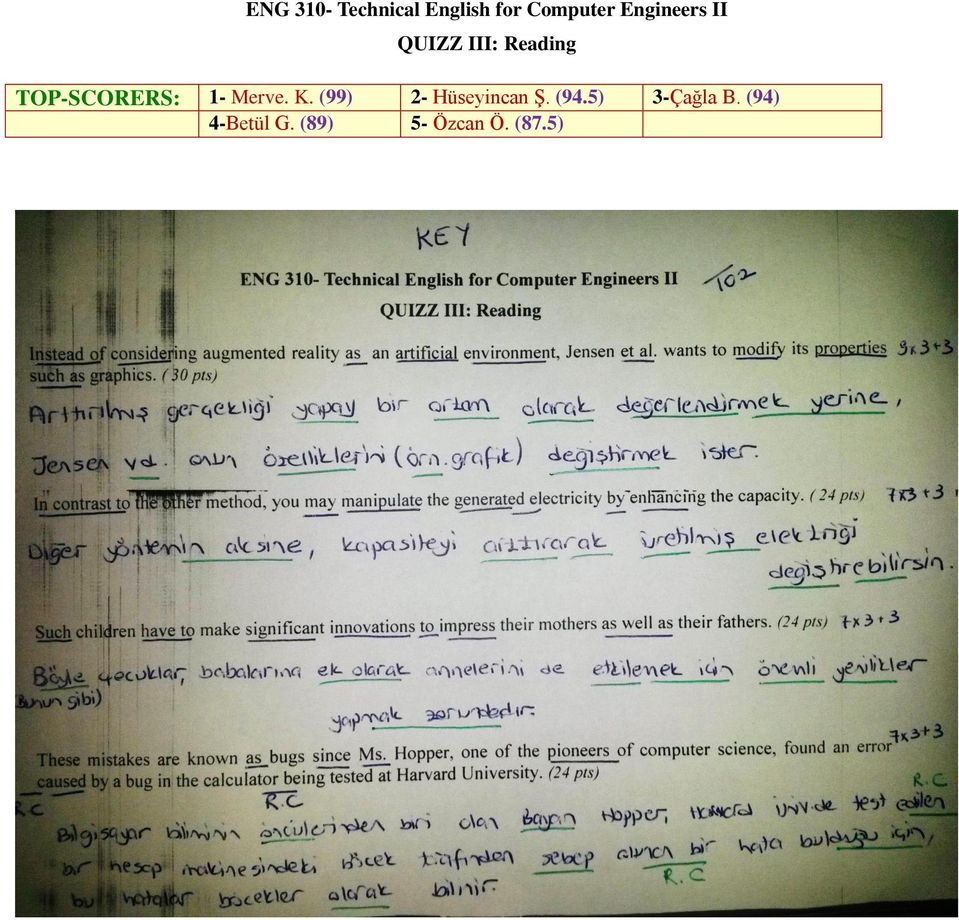 ENG 310- Technical English for Computer Engineers II
QUIZZ III: Reading
TOP-SCORERS: 1- Merve. K. (99) 2- Hüseyincan Ş. (94.5) 3-Çağla B. (94)
4-Betül G. (89) 5- Özcan Ö. (87.5)
KEY
ENG 310- Technical English for Computer Engineers II /102
QUIZZ III: Reading
Instead of considering augmented reality as an artificial environment, Jensen et al. wants to modify its properties 9x3+3
such as graphics. (30 pts)
Arttırılmış gerçekliği yapay bir ortam olarak değerlendirmek yerine,
Jensen vd. onun özelliklerini (örn. grafik) değiştirmek ister.
In contrast to the other method, you may manipulate the generated electricity by enhancing the capacity. (24 pts) 7x3+3
Diğer yöntemin aksine, kapasiteyi arttırarak üretilmiş elektriği
değiştirebilirsin.
Such children have to make significant innovations to impress their mothers as well as their fathers. (24 pts) 7x3+3
Böyle çocuklar, babalarına ek olarak annelerini de etkilemek için önemli yenilikler
Bunun gibi)
yapmak zorundadır.
7x3+3
These mistakes are known as bugs since Ms. Hopper, one of the pioneers of computer science, found an error
caused by a bug in the calculator being tested at Harvard University. (24 pts)
R.C R.C R.C
Bilgisayar biliminin öncülerinden biri olan Bayan Hopper, Harvard Üniv.de test edilen
bir hesap makinesindeki böcek tarafından sebep olunan bir hata bulduğu için,
R.C
bu hatalar böcekler olarak bilinir.